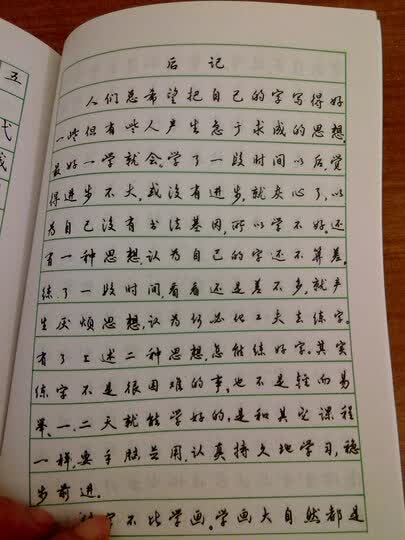 五
后记
人们总希望把自己的字写得好
一些但有些人产生急于求成的思想,
最好一学就会,学了一段时间以后,觉
得进步不大,或没有进步,就灰心了,以
为自己没有书法基因,所以学不好,还
有一种思想,认为自己的字还不算差,
练了一段时间,看看还是差不多,就产
生厌烦思想,认为何必化工夫去练字.
有了上述二种思想,怎能练好字,其实
练字不是很困难的事,也不是轻而易
举,一.二天就能学好的,是和其它课程
一样,要手脑并用,认真持久地学习,稳
步前进.
字不比学画。学画大自然都是